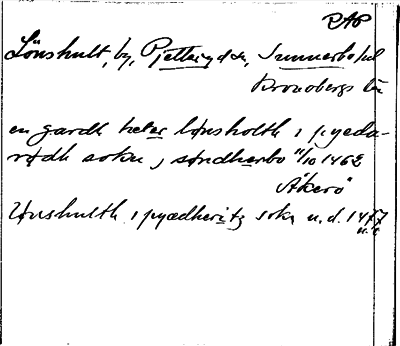 RAP
Lönshult, by, Pjetteryds sn, Sunnerbo hd
Kronobergs län
en gardh heter lønsholth i pyeda-
rydh sokn, søndherbo 11/10 1462
Åkerö
Lønshulth i pyædheritz sokn u.d. 1477